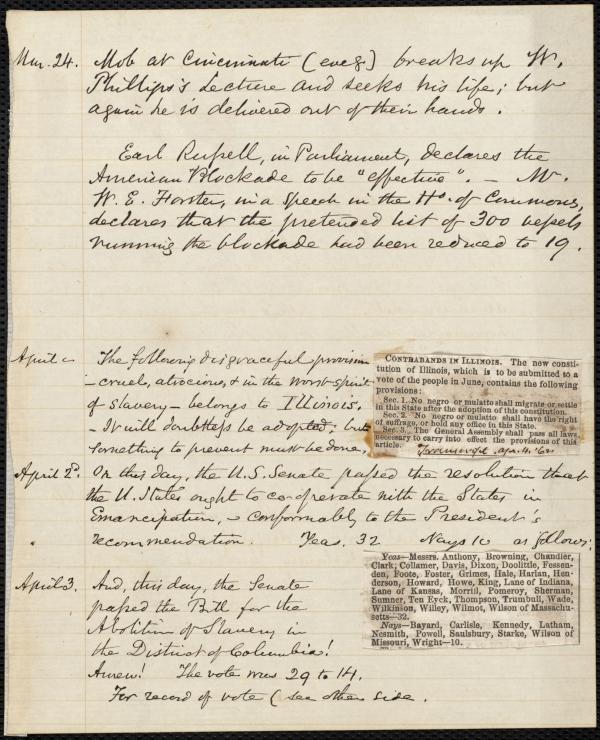 Mar. 24. Mob at Cincinnati (eveg) breaks up W.
Phillips's Lecture and seeks his life; but
again he is delivered out of their hands.
Earl Russell, in Parliament, declares the
American Blockade to be "effective". – Mr.
W. E. Forster, in a speech in the Ho. of Commons,
declares that the pretended list of 300 vessels
running the blockade had been reduced to 19.
April The following disgraceful provision
– cruel, atrocious, & in the worst spirit
of slavery – belongs to Illinois.
– It will doubtless be adopted; but
something to prevent must be done.
CONTRABANDS IN ILLINOIS. The new consti-
tution of Illinois, which is to be submitted to a
vote of the people in June, contains the following
provisions:
Sec. 1. No negro or mulatto shall migrate or settle
in this State after the adoption of this constitution.
Sec. 2. No negro or mulatto shall have the right
of suffrage, or hold any office in this State.
Sec. 3. The General Assembly shall pass all laws
necessary to carry into effect the provisions of this
article.
April 2d. On this day, the U.S. Senate passed the resolution that
the U. States ought to co-operate with the States in
Emancipation, – conformably to the President's
recommendation. Yeas. 32 Nays 10 as follows:
Yeas—Messrs. Anthony, Browning, Chandler,
Clark, Collamer, Davis, Dixon, Doolittle, Fessen-
den, Foote, Foster, Grimes, Hale, Harlan, Hen-
derson, Howard, Howe, King, Lane of Indiana,
Lane of Kansas, Morrill, Pomeroy, Sherman,
Sumner, Ten Eyck, Thompson, Trumbull, Wade,
Wilkinson, Willey, Wilmot, Wilson of Massachu-
setts—32.
Nays—Bayard, Carlisle, Kennedy, Latham,
Nesmith, Powell, Saulsbury, Starke, Wilson of
Missouri, Wright—10.
April 3. And, this day, the Senate
passed the Bill for the
Abolition of Slavery in
the District of Columbia!
Amen! The vote was 29 to 14.
For record of vote (see other side.